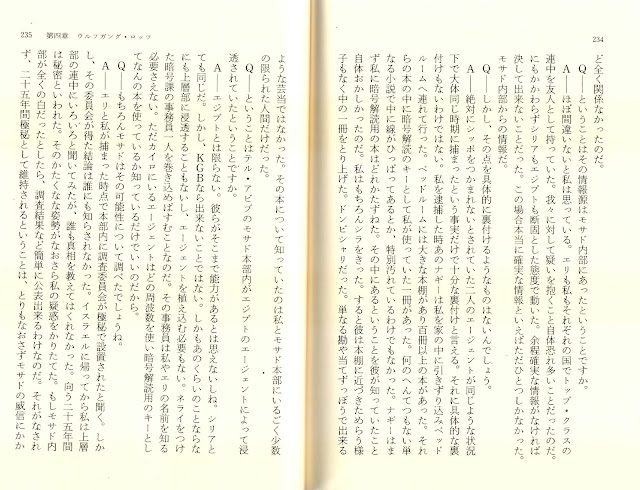 234
ど全く関係なかったのだ。
Q――ということはその情報源はモサド内部にあったということですか。
A――ほぼ間違いないと私は思っている。エリも私もそれぞれの国でトップ・クラスの
連中を友人として持っていた。我々に対して疑いを抱くこと自体恐れ多いことだったのだ。
にもかかわらずシリアもエジプトも断固とした態度で動いた。余程確実な情報がなければ
決して出来ないことだった。この場合本当に確実な情報といえばただひとつしかなかった。
モサド内部からの情報だ。
Q――しかし、その点を具体的に裏付けるようなものはないんでしょう。
A――絶対にシッポをつかまれないとされていた二人のエージェントが同じような状況
下で大体同じ時期に捕まったという事実だけで十分な裏付けと言える。それに具体的な裏
付けもないわけではない。私を逮捕した時あのナギーは私を家の中に引きずり込みベッド
ルームへ連れて行った。ベッドルームには大きな本棚があり百冊以上の本があった。それ
らの本の中に暗号解読のキーとして私が使っていた一冊があった。何のへんてつもない単
なる小説で中に線がひっぱってあるとか、特別汚れているわけでもなかった。ナギーはま
ず私に暗号解読用の本はどれかたずねた。その中にあるということを彼が知っていたこと
自体おかしかったのだ。私はもちろんシラをきった。すると彼は本棚に近づきためらう様
子もなく中の一冊をとり上げた。ドンピシャリだった。単なる勘や当てずっぽうで出来る
235 第四章 ウルフガング・ロッツ
ような芸当ではなかった。その本について知っていたのは私とモサド本部にいるごく少数
の限られた人間だけだった。
Q――ということはテル・アビブのモサド本部内がエジプトのエージェントによって浸
透されていたということですか。
A――エジプトとは限らない。彼らがそこまで能力があるとは思えないしね。シリアと
ても同じだ。しかし、KGBなら出来ないことではない。しかもあのくらいのことならな
にも上層部に浸透することもないし、エージェントを植え込む必要もない。ネライをつけ
た暗号課の事務員一人を巻き込めばすむことなのだ。その事務員は私やエリの名前を知る
必要さえない。ただカイロにいるエージェントはどの周波数を使い暗号解読用のキーとし
てなんの本を使っているか知っているだけでいいのだから。
Q――もちろんモサドはその可能性について調べたでしょうね。
A――エリと私が捕まった時点で本部内に調査委員会が極秘で設置されたと聞く。しか
し、その委員会が得た結論は誰にも知らされなかった。イスラエルに帰ってから私は上層
部の連中にいろいろと聞いてみたが、誰も真相を教えてはくれなかった。向う二十五年間
は秘密といわれた。そのかたくなな姿勢がなおさら私の疑惑をかりたてた。もしモサド内
部が全くの白だったとしたら、調査結果など簡単に公表出来るわけなのだ。それがなされ
ず、二十五年間極秘として維持されるということは、とりもなおさずモサドの威信にかか